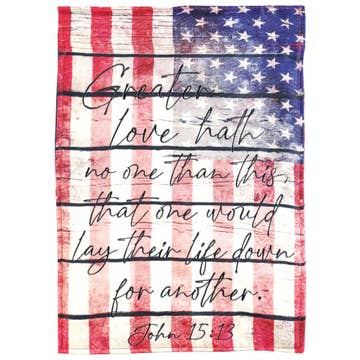 Greater
love hath
no one than this,
that one would
lay their life down
for another.
John 15:13